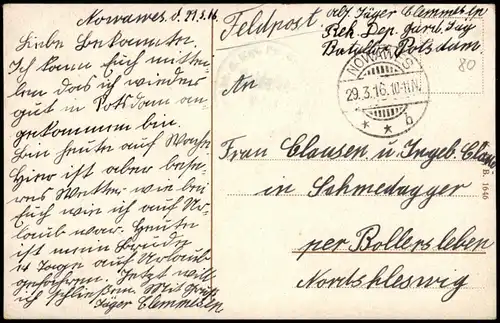 Nowawes d. 29.3.16
Liebe Bekannte.
Ich kann Euch mittei-
len das ich wieder
gut in Potsdam an-
gekommen bin.
Bin heute auf Wache
Hier ist aber besse-
res Wetter wie bei
Euch wie ich auf Ur-
laub war. Heute
ist mein Bruder
14 Tage auf Urlaub
gefahren. Jetzt will
ich schließen. Mit Gruß
Jäger Clemmesen
Feldpost
Abs. Jäger Clemmesen
Rek. Dep. Gard. Jäg
Batallon Potsdam.
80
NOWAWES
29.3.16.10-11N.
* * b
An
Frau Clausen u. Ingeb. Claus.
in Schmedagger
per Bollersleben
Nordshleswig
B. 1646